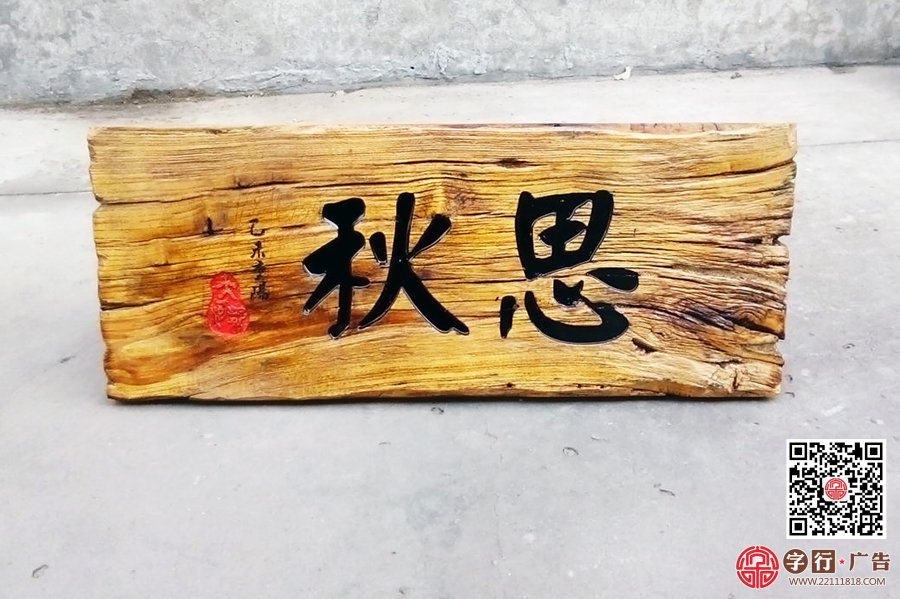 思秋
字行★广告
WWW.22111818.COM